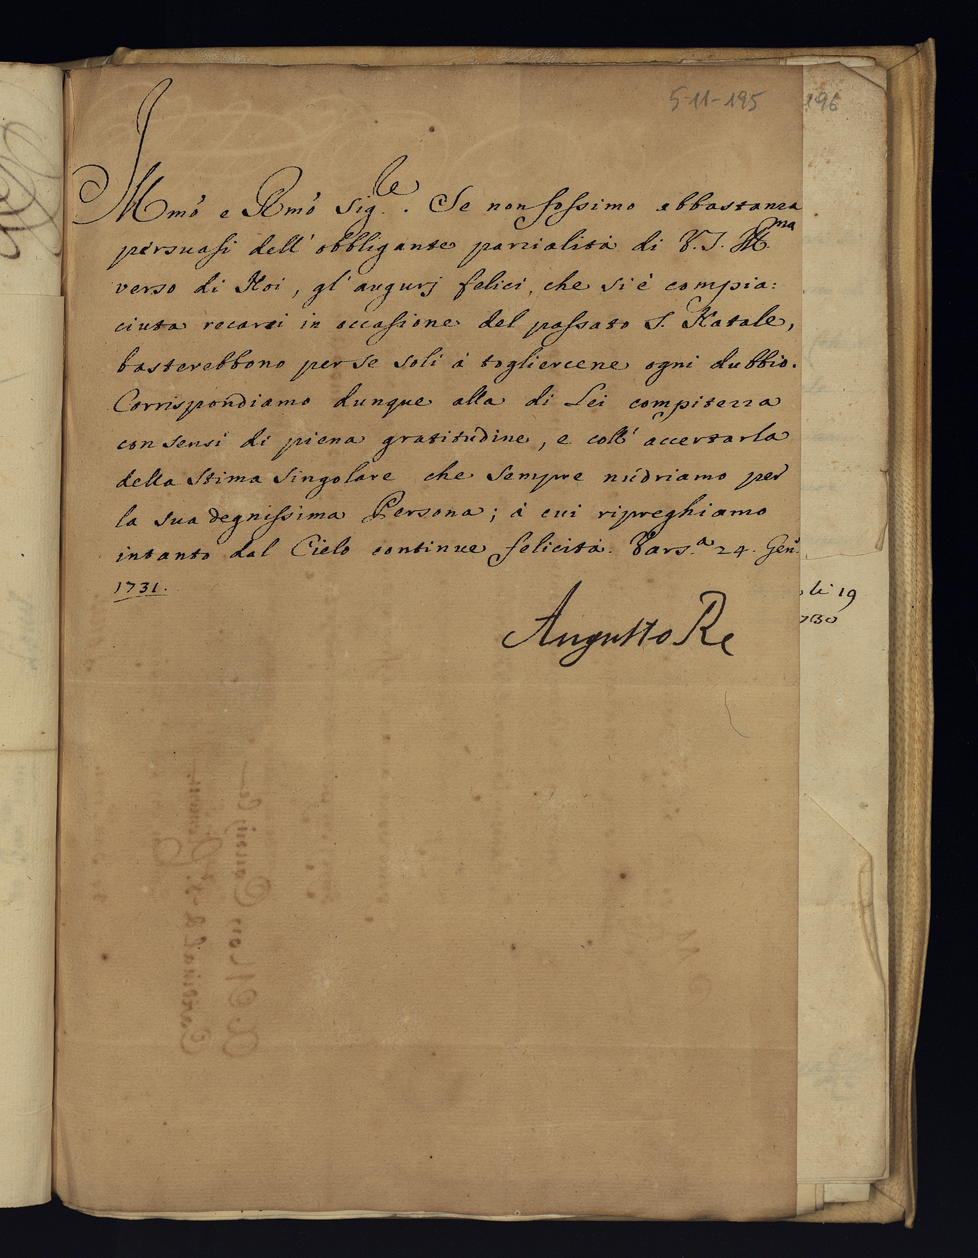 5-11-195
196
Illmo e Rmo Sigle. Se non fossimo abbastanza
persuasi dell' obbligante parzialità di V.S. Illma
verso di Noi, gl'augurj felici, che si è compia:
ciuta recarci in occasione del passato S. Natale,
basterebbono per se soli à togliercene ogni dubbio.
Corrispondiamo dunque alla di Lei compitezza
con sensi di piena gratitudine, e coll' accertarla
della stima singolare che sempre nudriamo per
la sua degnissima Persona; à cui ripreghiamo
intanto dal Cielo continue felicità. Vars.a 24. Gen.
1731.
Augusto Re
li 19
1730